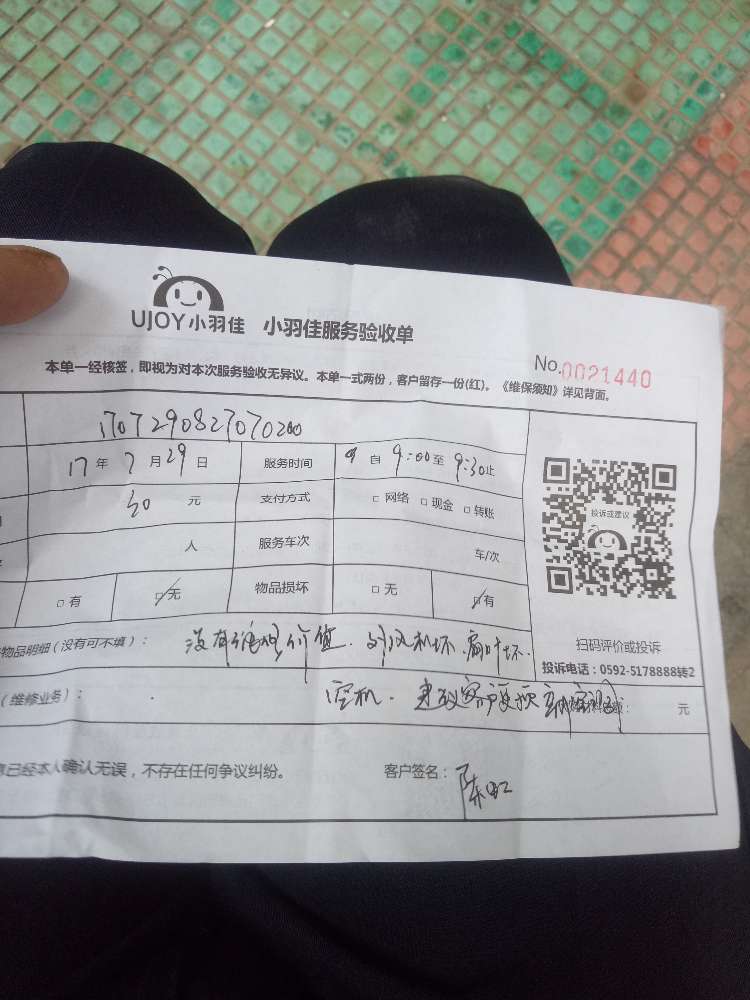 UJOY小羽佳 小羽佳服务验收单
No.0021440
本单一经核签，即视为对本次服务验收无异议。本单一式两份，客户留存一份(红)。《维保须知》详见背面。
1707290827070200
17年7月29日 服务时间 自9:00至9:30止
30元 支付方式 □网络 □现金 □转账
人 服务车次 车/次
□有 □无 物品损坏 □无 □有
投诉或建议
扫码评价或投诉
投诉电话：0592-5178888转2
物品明细（没有可不填）： 没有维修价值. 外风机坏. 扇叶坏.
（维修业务）： 空机. 建议客户更换 元
已经本人确认无误，不存在任何争议纠纷。 客户签名：陈虹